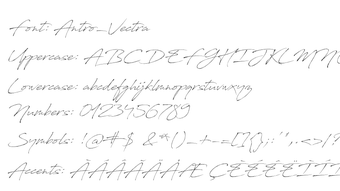 Font: Antro_Vectra
Uppercase: ABCDEFGHIJKLMN
Lowercase: abcdefghijklmnopqrstuvwxyz
Numbers: 0123456789
Symbols: !@#$ &*()_+-=[]{};:",.<>/?
Accents: ÀÁÂÃÄÅÆ ÇÈÉÊËÌÍÎ